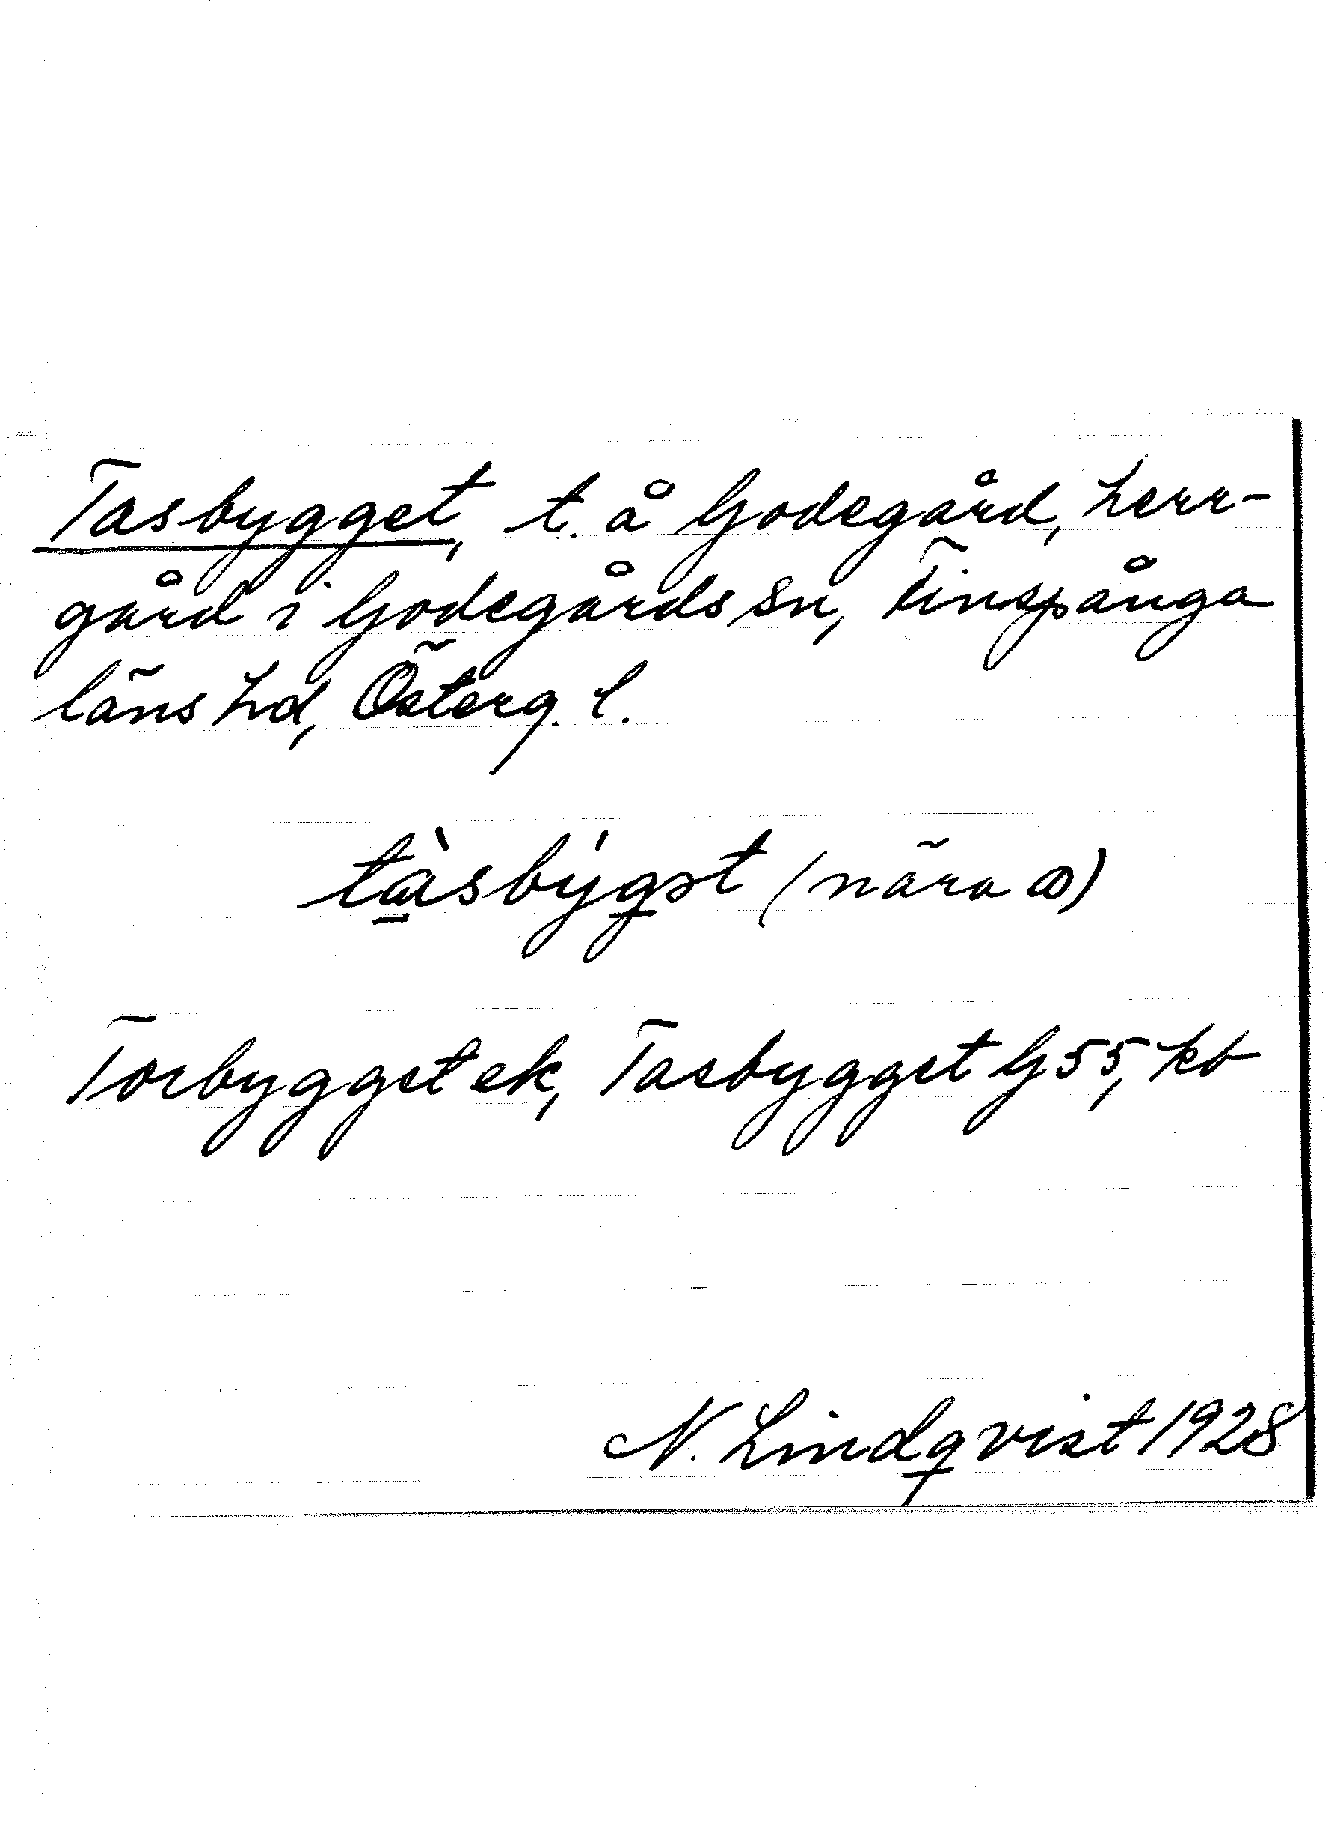 Tasbygget, t. å Godegård, herr-
gård i Godegårds sn, Finspånga
läns hd, Österg. l.
tàsbýgət (nära a)
Torbygget ek, Tasbygget G55, kb
N. Lindqvist 1928